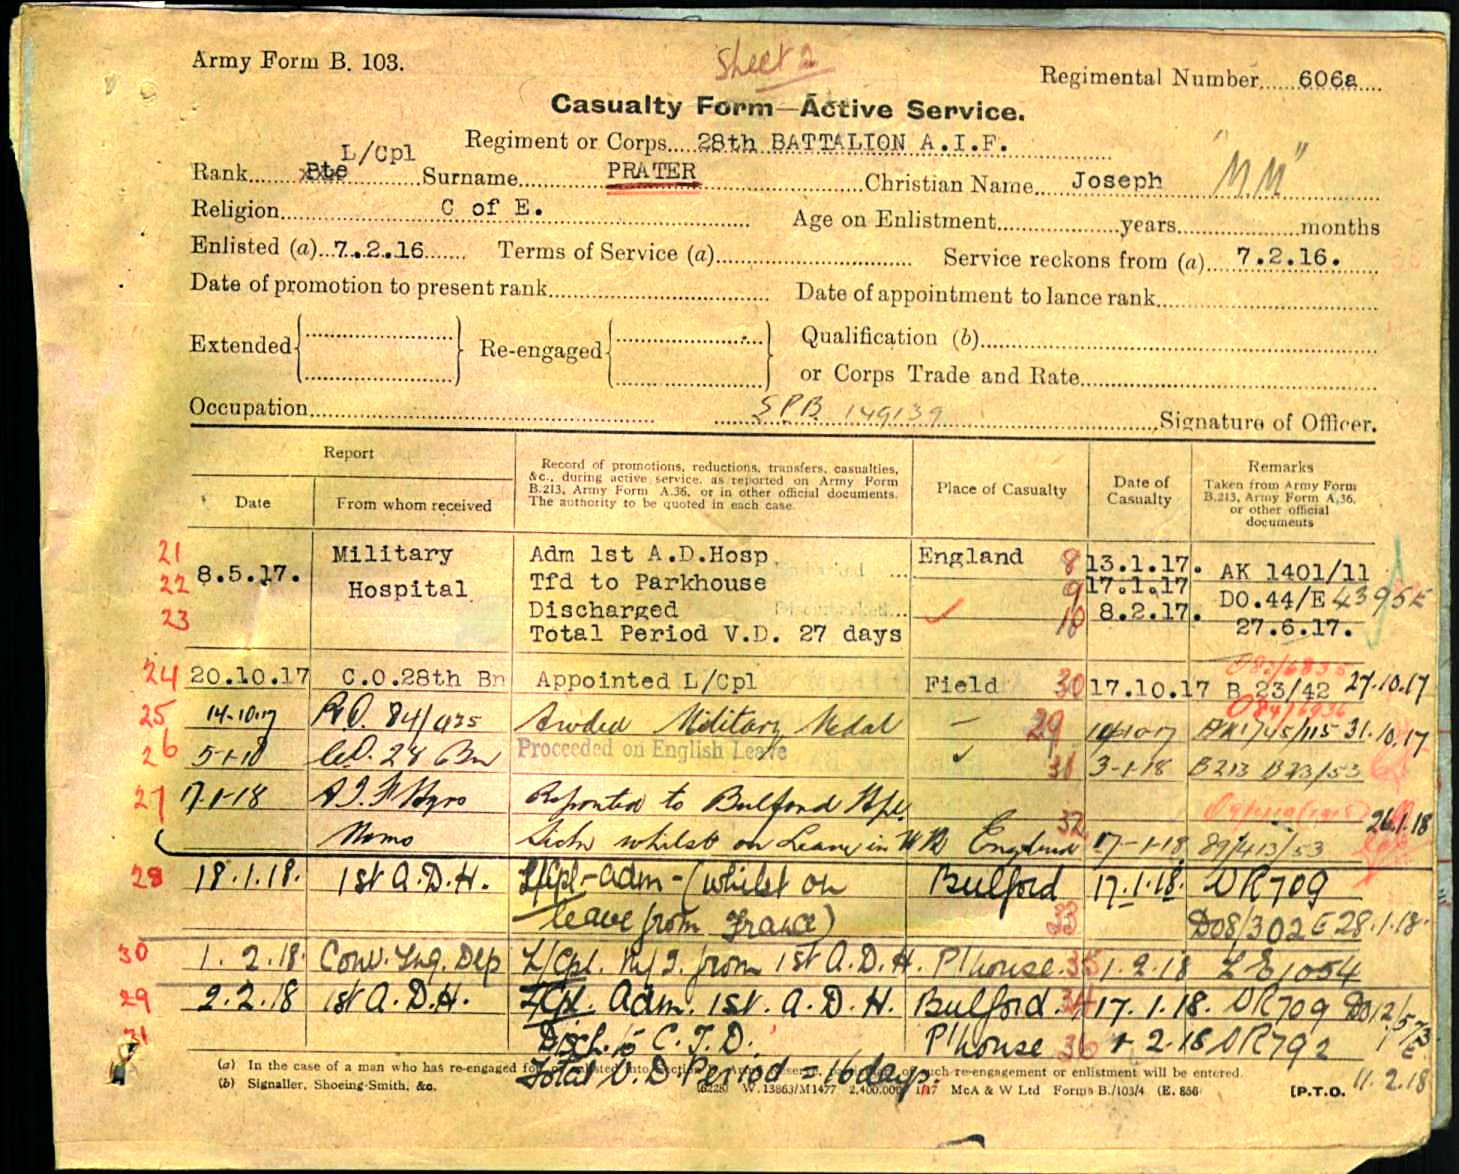 Sheet 2
Army Form B. 103.
Regimental Number 606a
Casualty Form—Active Service.
Regiment or Corps 28th BATTALION A.I.F.
L/Cpl
Rank Pte Surname PRATER Christian Name Joseph "M.M"
Religion C of E. Age on Enlistment years months
Enlisted (a) 7.2.16 Terms of Service (a) Service reckons from (a) 7.2.16.
Date of promotion to present rank Date of appointment to lance rank
Extended Re-engaged Qualification (b)
or Corps Trade and Rate
Occupation S.P.B. 149139 Signature of Officer.
Report
Date From whom received
Record of promotions, reductions, transfers, casualties,
&c., during active service, as reported on Army Form
B.213, Army Form A.36, or in other official documents.
The authority to be quoted in each case.
Place of Casualty
Date of
Casualty
Remarks
Taken from Army Form
B.213, Army Form A.36,
or other official
documents
21 8.5.17. Military Adm 1st A.D.Hosp England 8 13.1.17. AK 1401/11
22 Hospital Tfd to Parkhouse 9 17.1.17 DO.44/E 4395E
23 Discharged 10 8.2.17. 27.6.17.
Total Period V.D. 27 days
24 20.10.17 C.O.28th Bn Appointed L/Cpl Field 30 17.10.17 B 23/42 27.10.17
25 14-10-17 R.O. 84/ Awded Military Medal — 29 31.10.17
26 5-1-18 C.O. 28 Bn Proceeded on English Leave 31 3-1-18 B213 B23/53
27 17-1-18 A.I.F. Hqrs Reported to Bulford Hpl. 26.1.18
Memo Sick whilst on Leave in U.K. 32 England 17-1-18 89/413/53
28 18.1.18. 1st A.D.H. L/Cpl - adm - (whilst on Bulford 17.1.18. DR709
leave from France) 33 DO8/302E 28.1.18.
30 1.2.18. Conv. Tng. Dep L/Cpl. M/I. from 1st A.D.H. P'house. 35 1.2.18 LE1054
29 2.2.18 1st A.D.H. L/Cpl. Adm. 1st. A.D.H. Bulford. 34 17.1.18. DR709 DO12/573E
31 Disch. to C.T.D. P'house 36 1.2.18 DR792
Total V.D. Period = 16 days. 11.2.18
(a) In the case of a man who has re-engaged for such re-engagement or enlistment will be entered.
(b) Signaller, Shoeing-Smith, &c.
(6228) W.13863/M1477 2,400,000 1/17 McA & W Ltd Forms B./103/4 (E. 856
[P.T.O.